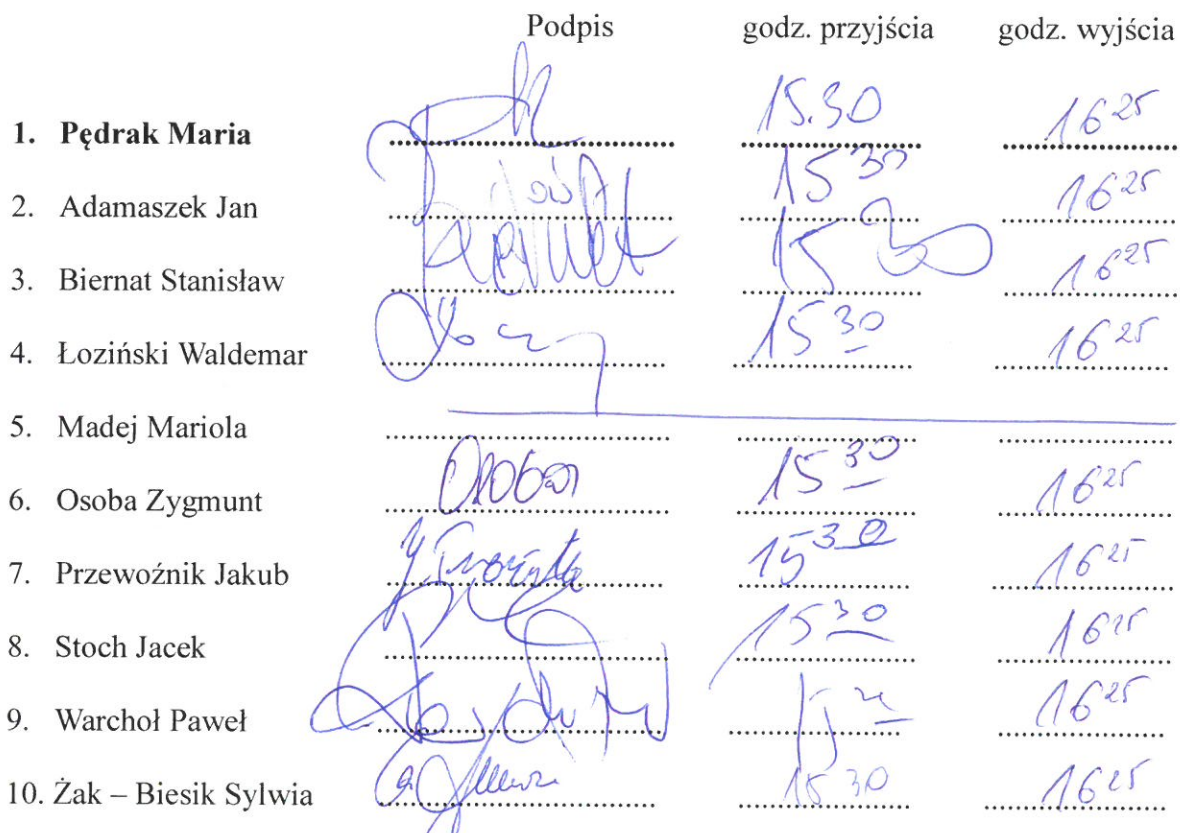 Podpis godz. przyjścia godz. wyjścia
1. Pędrak Maria 15.30 16 25
2. Adamaszek Jan 15 30 16 25
3. Biernat Stanisław Biernat 15 30 16 25
4. Łoziński Waldemar 15 30 16 25
5. Madej Mariola
6. Osoba Zygmunt Osoba 15 30 16 25
7. Przewoźnik Jakub 15 30 16 25
8. Stoch Jacek 15 30 16 25
9. Warchoł Paweł 16 25
10. Żak – Biesik Sylwia 15 30 16 25